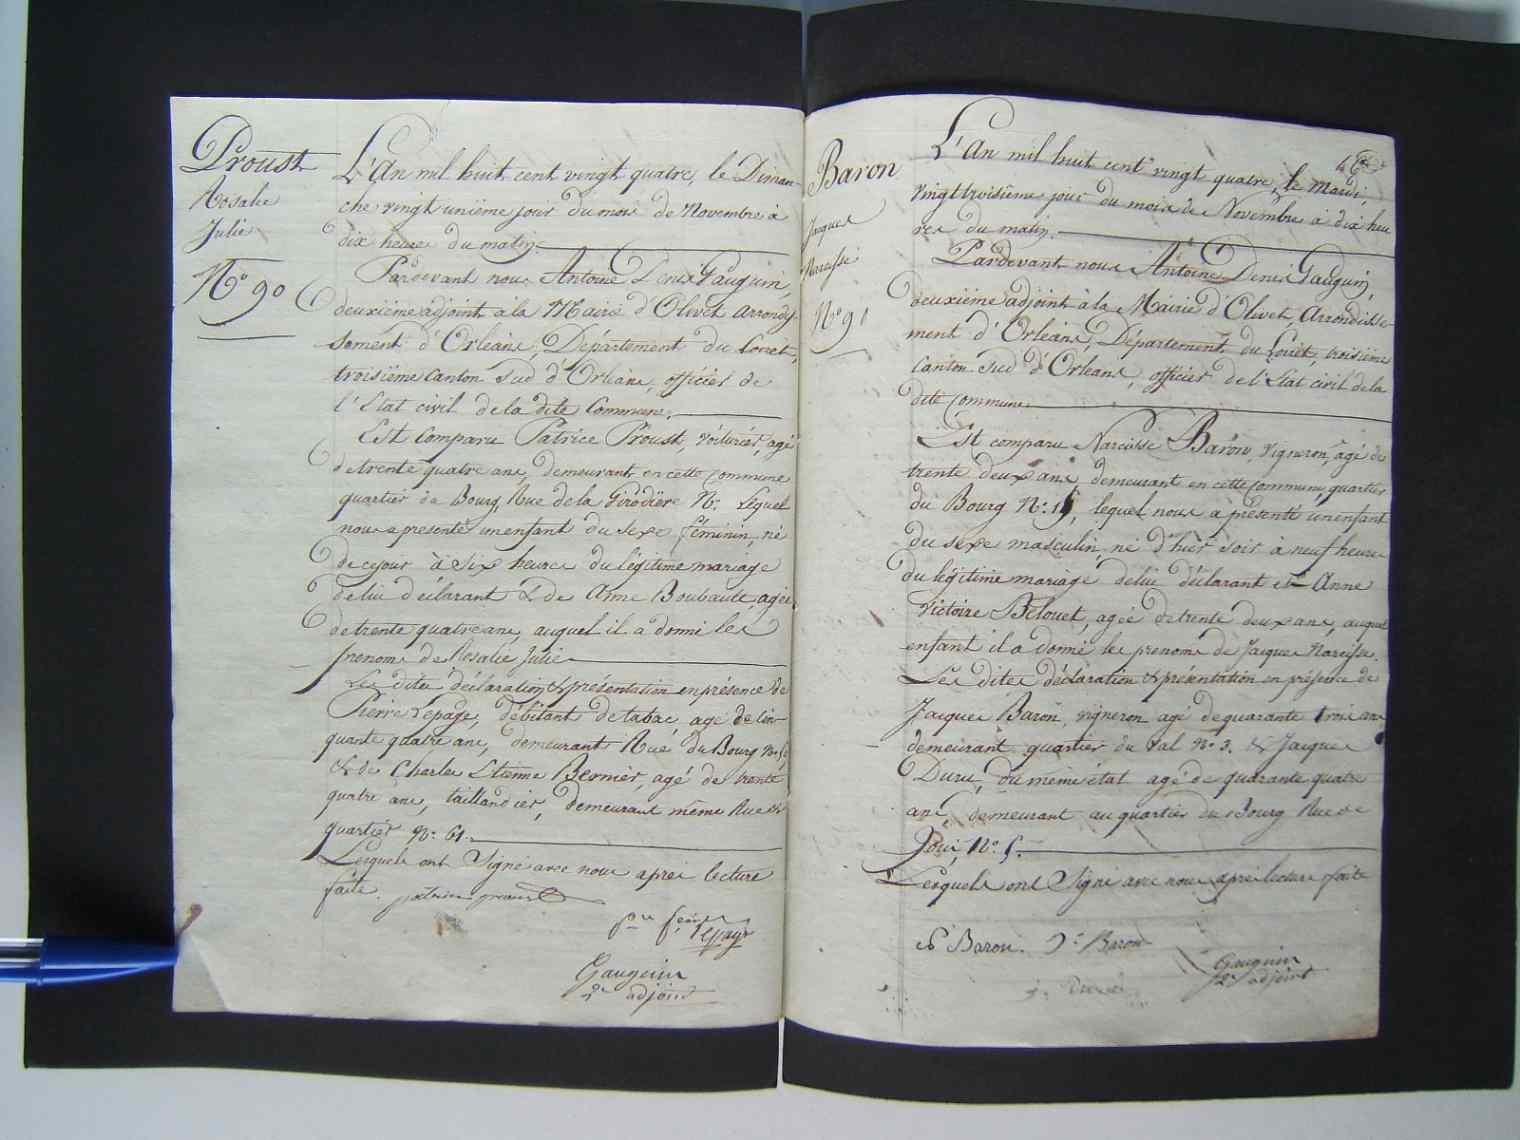 Proust
Rosalie
Julie
N.o 90
L'An mil huit cent vingt quatre, le Diman-
che vingt unième jour du mois de Novembre à
dix heures du matin.
Pardevant nous Antoine Denis Gauguin,
deuxième adjoint à la Mairie d'Olivet arrondis-
sement d'Orléans, Département du Loiret,
troisième Canton sud d'Orléans, officier de
l'Etat civil de la dite Commune.
Est Comparu Patrice Proust, voiturier, agé
de trente quatre ans, demeurant en cette commune
quartier de Bourg, Rue de la Girodière N.o Lequel
nous a présenté un enfant du sexe féminin, né
de ce jour à six heures du légitime mariage
de lui déclarant & de Anne Boubault, agée
de trente quatre ans, auquel il a donné les
prenoms de Rosalie Julie
Les dites déclaration & présentation en présence de
Pierre Lepage, débitant de tabac agé de cin-
quante quatre ans, demeurant Rue du Bourg N.o
& de Charles Etienne Bernier, agé de trente
quatre ans, taillandier, demeurant même Rue &
quartier N.o 61.
Lesquels ont Signé avec nous après lecture
faite. patrice proust
Lepage
Gauguin
2.e adjoint
Baron
Jacques
Narcisse
N.o 91
L'An mil huit cent vingt quatre, le Mardi,
vingt troisième jour du mois de Novembre à dix heu
res du matin.
Pardevant nous Antoine Denis Gauguin,
deuxième adjoint à la Mairie d'Olivet, Arrondisse-
ment d'Orléans, Département du Loiret, troisième
Canton Sud d'Orléans, officier de l'Etat civil de la
dite Commune.
Est comparu Narcisse Baron, vigneron, agé de
trente deux ans, demeurant en cette Commune, quartier
du Bourg N.o lequel nous a présenté un enfant
du sexe masculin né d'hier soir à neuf heures
du légitime mariage de lui déclarant et Anne
Victoire Belouet, agée de trente deux ans, auquel
enfant il a donné les prenoms de Jacques Narcisse.
Les dites déclaration & présentation en présence de
Jacques Baron, vigneron agé de quarante trois ans
demeurant quartier du Val N.o 3. & Jacques
Duru, du même état agé de quarante quatre
ans, demeurant au quartier du Bourg Rue de
N.o 5.
Lesquels ont Signé avec nous après lecture faite
Baron. J. Baron
Gauguin
2.e adjoint